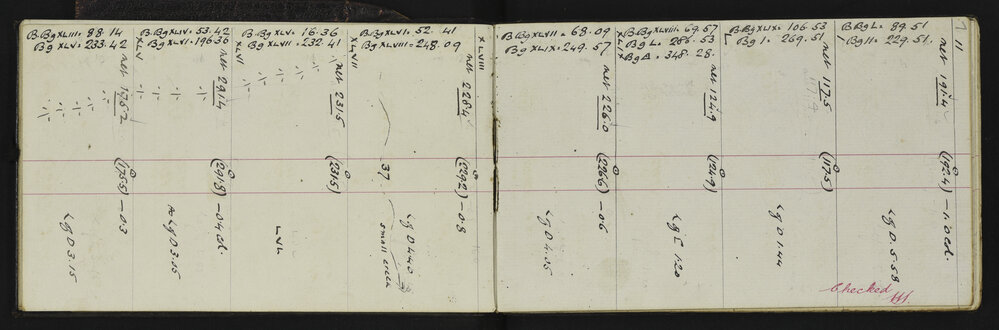 B.Bg XLIII = 88.14
Bg XLV = 233.42
XLV
net 175.2
(175.5) – 0.3
Lg D 3.15
B.Bg XLIV = 53.42
Bg XLVI = 196.36
XLVI
net 291.4
(291.8) – 0.4 d.
Lg D 3.15
B.Bg XLV = 16.36
Bg XLVII = 232.41
net 231.5
(231.5)
LVL
XLVII
B.Bg XLVI = 52.41
Bg XLVIII = 248.09
net 228.4
(229.2) – 0.8
37
small creek
Lg D 4.40
XLVIII
B.Bg XLVII = 68.09
Bg XLIX = 249.57
net 226.0
(226.6) – 0.6
Lg D 4.05
B.Bg XLVIII = 69.57
Bg L = 286.53
Bg A = 348.28
net 124.9
(124.9)
Lg E 1.20
B.Bg XLIX = 106.53
Bg I = 269.51
net 117.5
(117.5)
Lg D 1.44
B.Bg L = 89.51
Bg II = 229.51
net 191.4
(192.4) – 1.0 d.
Lg D. 5.58
II
Checked